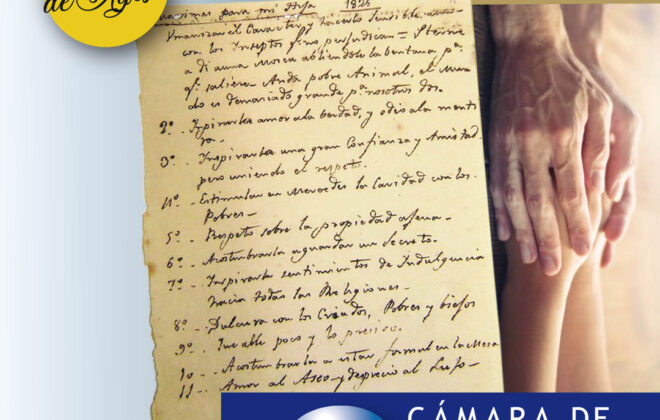 de Ago
Maximas para mi Hija 1825
Umanizar el Caracter y hacerlo sensible aun
con los Insectos q. no perjudican = Sterne
a di auna Mosca abriendole la bentana pª
qº saliese = Anda pobre Animal, el Mun
do es demaciado grande pª nosotros dos.
2º.. Inspirarla amor ala berdad, y odio ala menti
ra.
3º.. Inspirarla una gran Confianza y Amistad
pero uniendo el respeto.
4º.. Estimular en Mercedes la Caridad con los
Pobres -
5º.. Respeto sobre la propiedad ajena -
6º.. Acostumbrarla a guardar un Secreto.
7º.. Inspirarla sentimientos de Indulgencia
hacia todas las Religiones -
8º.. Dulzura con los Criados, Pobres y biejos
9º.. Que able poco y lo preciso.
10.. Acostumbrarla a estar formal en la Mesa
11.. Amor al Aseo y desprecio al Lujo -
CÁMARA DE